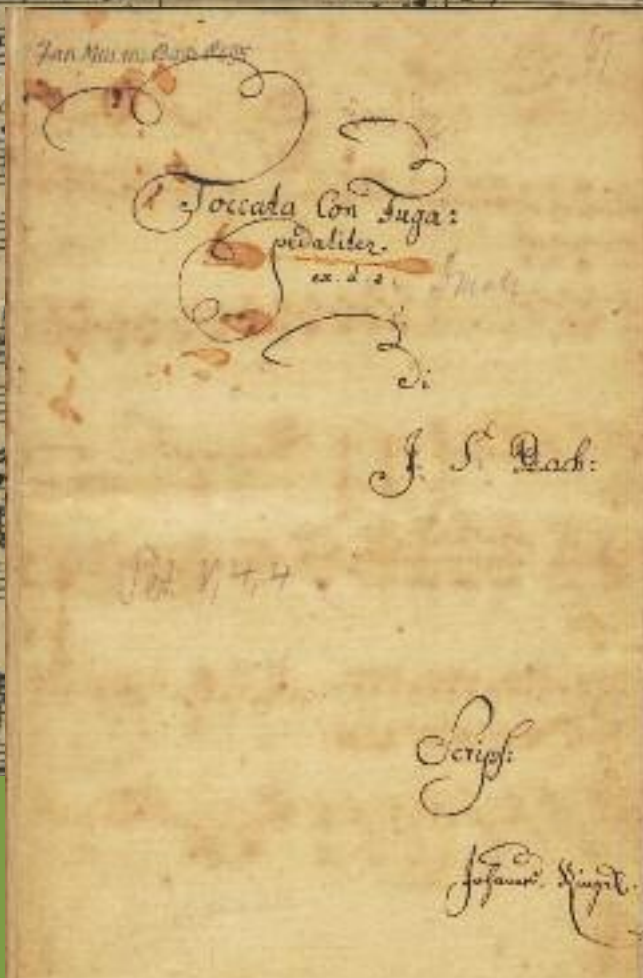 Toccata Con Fuga:
pedaliter.
ex. d. #.
di
J. S. Bach:
Script:
Johannes Ringk.